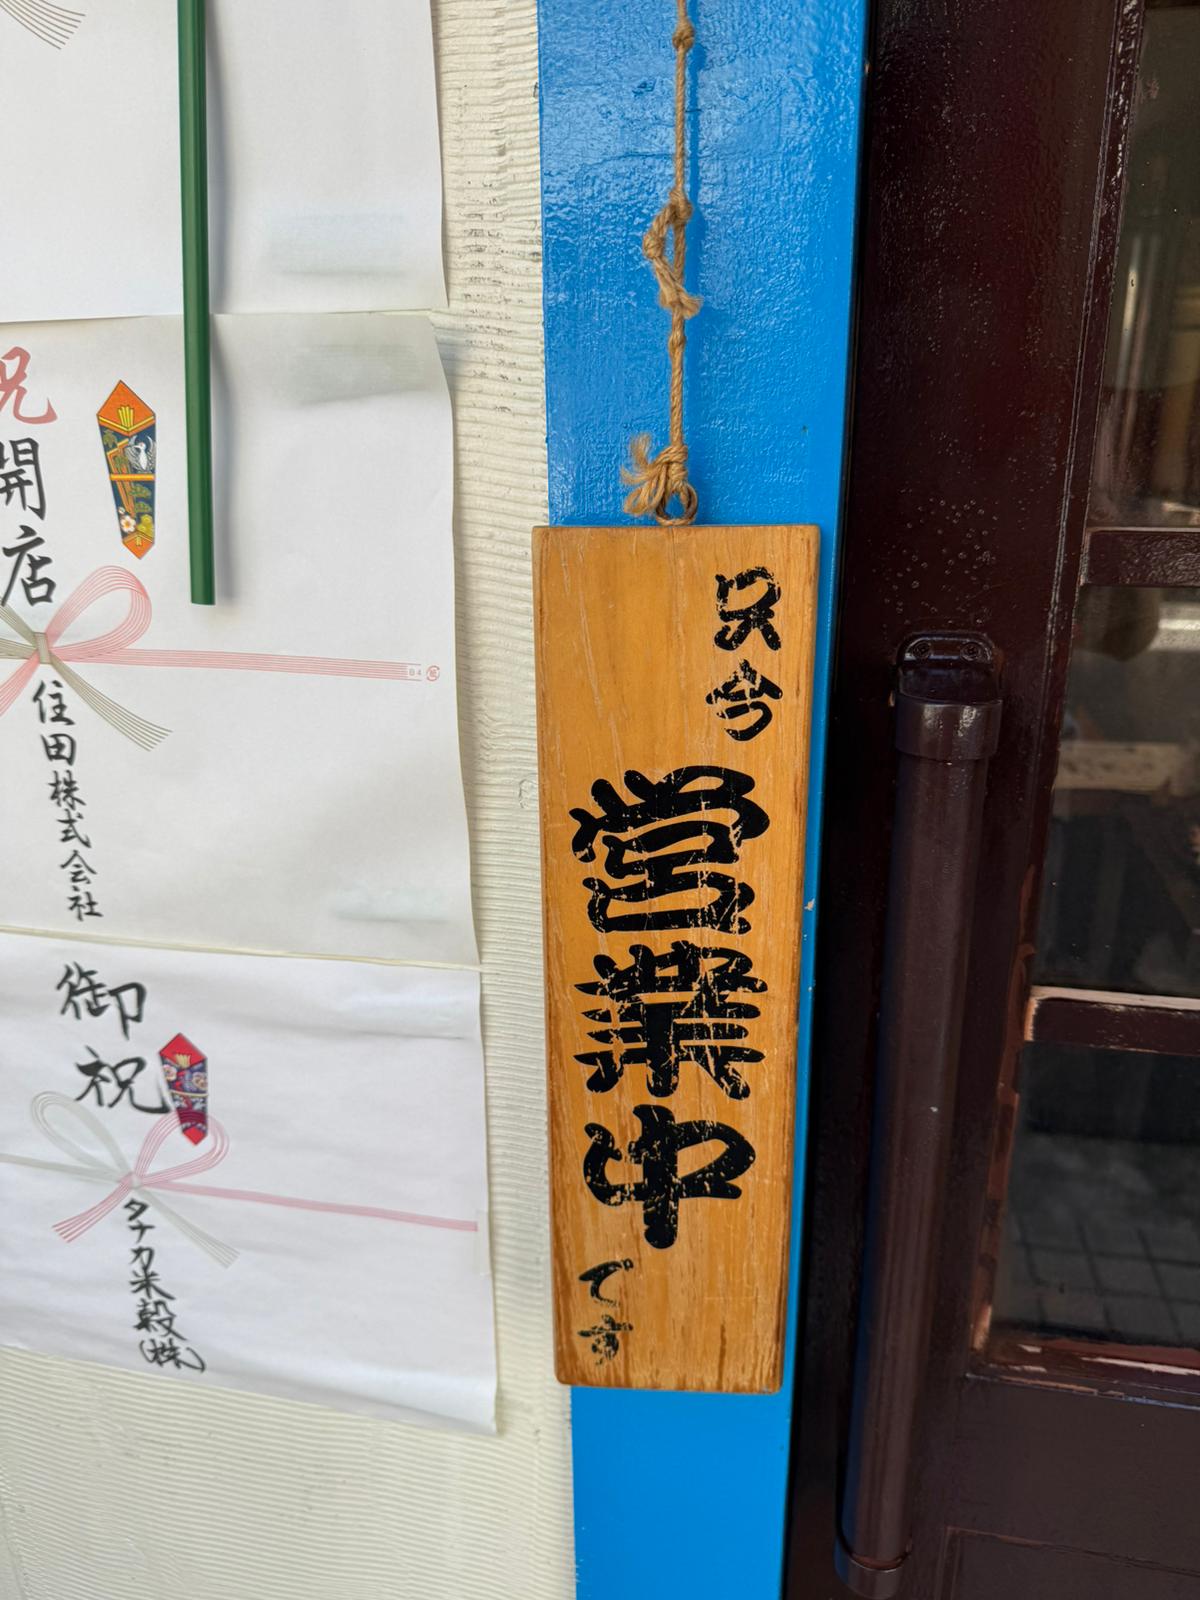 只今
営業中
です
祝
開店
住田株式会社
B4
御祝
タナカ米穀(株)